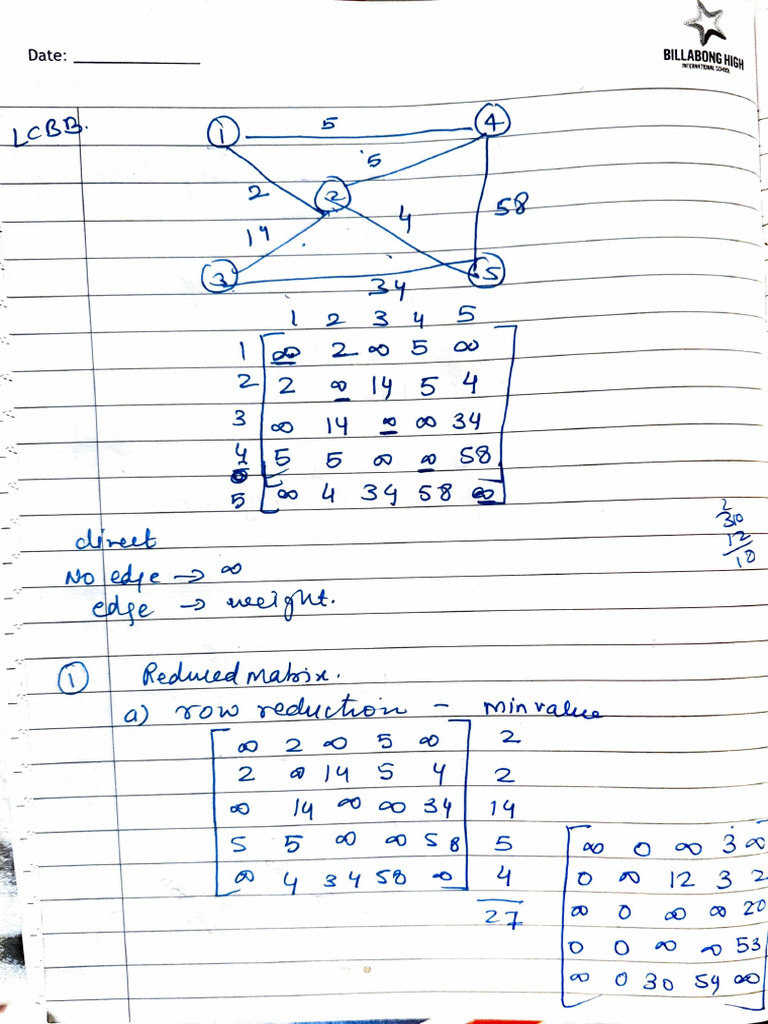 Date: ____________
BILLABONG HIGH
INTERNATIONAL SCHOOL
LCBB.
1 5 4
5
2 2 4 58
14
3 5
34
1 2 3 4 5
1 ∞ 2 ∞ 5 ∞
2 2 ∞ 14 5 4
3 ∞ 14 ∞ ∞ 34
4 5 5 ∞ ∞ 58
5 ∞ 4 34 58 ∞
2
30
12
18
direct
No edge → ∞
edge → weight.
① Reduced matrix.
a) row reduction - min value
∞ 2 ∞ 5 ∞ 2
2 ∞ 14 5 4 2
∞ 14 ∞ ∞ 34 14
5 5 ∞ ∞ 58 5
∞ 4 34 58 ∞ 4
27
∞ 0 ∞ 3 ∞
0 ∞ 12 3 2
∞ 0 ∞ ∞ 20
0 0 ∞ ∞ 53
∞ 0 30 54 ∞